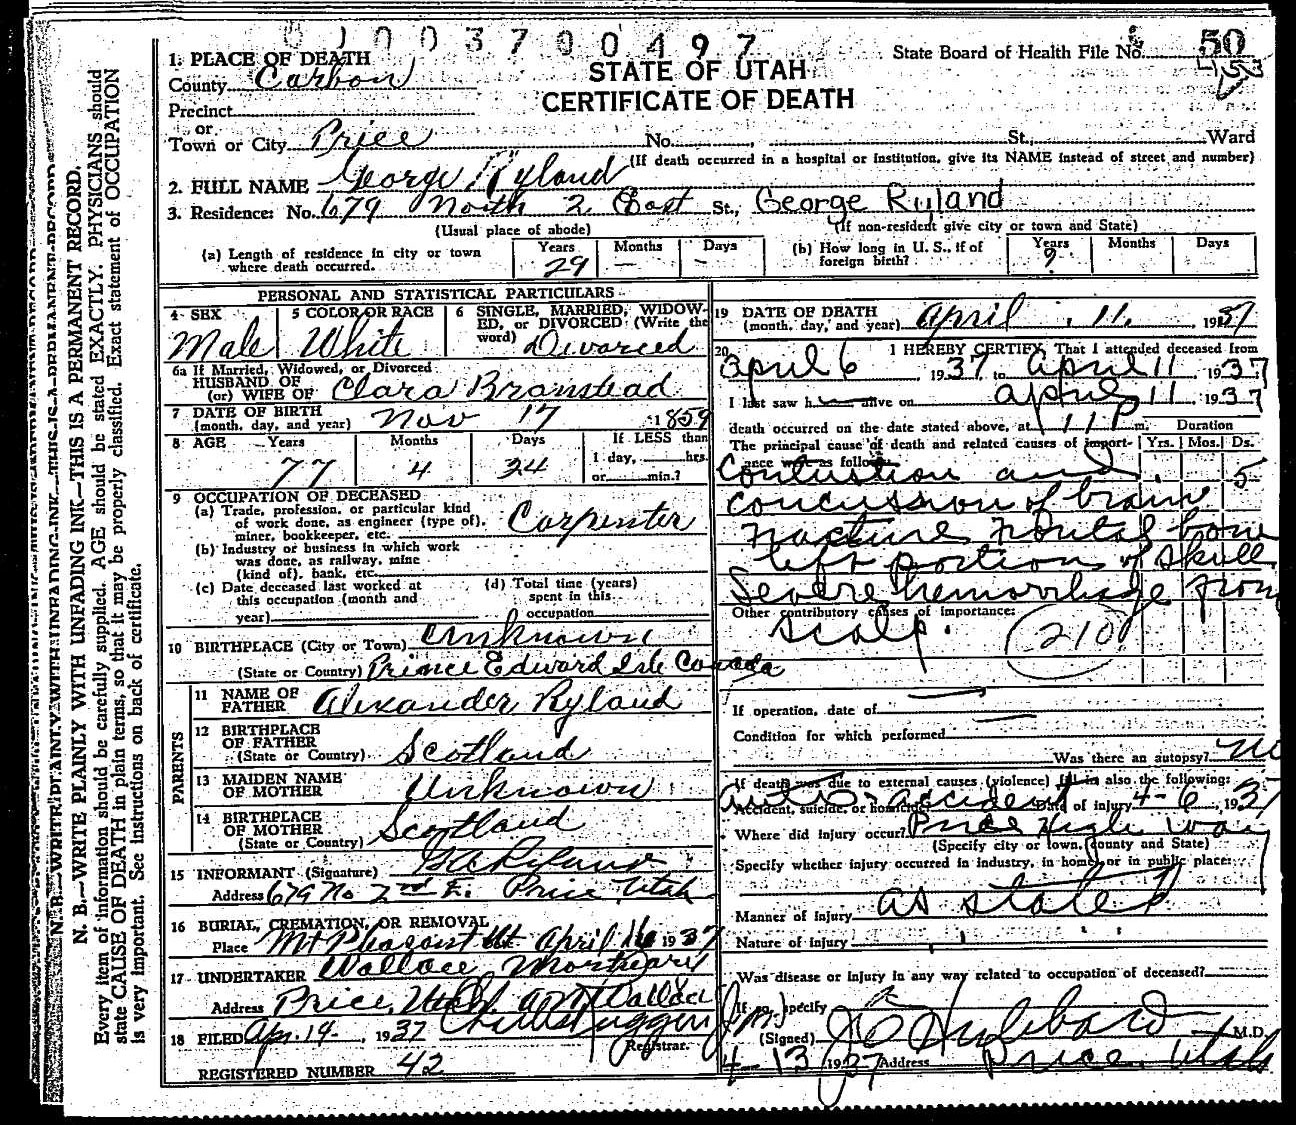 0 1 0 0 3 7 0 0 4 9 7
State Board of Health File No. 50
STATE OF UTAH
CERTIFICATE OF DEATH
1. PLACE OF DEATH
County Carbon
Precinct
or
Town or City Price No. , St., Ward
(If death occurred in a hospital or institution, give its NAME instead of street and number)
2. FULL NAME George Ryland
3. Residence: No. 679 North 2 East St., George Ryland
(Usual place of abode) (If non-resident give city or town and State)
(a) Length of residence in city or town where death occurred. Years 29 Months — Days —
(b) How long in U. S., if of foreign birth? Years ? Months Days
PERSONAL AND STATISTICAL PARTICULARS
4 SEX Male
5 COLOR OR RACE White
6 SINGLE, MARRIED, WIDOWED, or DIVORCED (Write the word) Divorced
6a If Married, Widowed, or Divorced
HUSBAND OF
(or) WIFE OF Clara Branstead
7 DATE OF BIRTH
(month, day, and year) Nov 17 1859
8 AGE Years 77 Months 4 Days 24 If LESS than
1 day, hrs.
or min.?
9 OCCUPATION OF DECEASED
(a) Trade, profession, or particular kind
of work done, as engineer (type of),
miner, bookkeeper, etc. Carpenter
(b) Industry or business in which work
was done, as railway, mine
(kind of), bank, etc.
(c) Date deceased last worked at
this occupation (month and
year)
(d) Total time (years)
spent in this
occupation
10 BIRTHPLACE (City or Town) Unknown
(State or Country) Prince Edward Isle Canada
PARENTS
11 NAME OF
FATHER Alexander Ryland
12 BIRTHPLACE
OF FATHER
(State or Country) Scotland
13 MAIDEN NAME
OF MOTHER Unknown
14 BIRTHPLACE
OF MOTHER
(State or Country) Scotland
15 INFORMANT (Signature) Ryland
Address 679 No 2nd E. Price, Utah
16 BURIAL, CREMATION, OR REMOVAL
Place Mt Pleasant Ut April 16 1937
17 UNDERTAKER Wallace Mortuary
Address Price, Utah. Wallace
18 FILED Apr. 14- , 1937
Registrar.
REGISTERED NUMBER 42
19 DATE OF DEATH
(month, day, and year) April 11, 1937
20 I HEREBY CERTIFY, That I attended deceased from
April 6 1937 to April 11 1937
I last saw h alive on April 11 1937
death occurred on the date stated above, at 11 P m. Duration
The principal cause of death and related causes of importance were as follows: Yrs. Mos. Ds.
Contusion and 5
concussion of brain
fracture frontal bone
left portion of skull
Severe hemorrhage from
Other contributory causes of importance:
scalp. 210
If operation, date of
Condition for which performed
Was there an autopsy? no
If death was due to external causes (violence) fill in also the following:
Accident, suicide, or homicide Auto accident Date of injury 4-6, 1937
Where did injury occur? Price High way
(Specify city or town, county and State)
Specify whether injury occurred in industry, in home, or in public place:
Manner of injury as stated
Nature of injury
Was disease or injury in any way related to occupation of deceased?
If so, specify
(Signed) J C Hubbard M.D.
4-13 1937 Address Price, Utah
N. B.—WRITE PLAINLY WITH UNFADING INK—THIS IS A PERMANENT RECORD.
Every item of information should be carefully supplied. AGE should be stated EXACTLY. PHYSICIANS should
state CAUSE OF DEATH in plain terms, so that it may be properly classified. Exact statement of OCCUPATION
is very important. See instructions on back of certificate.